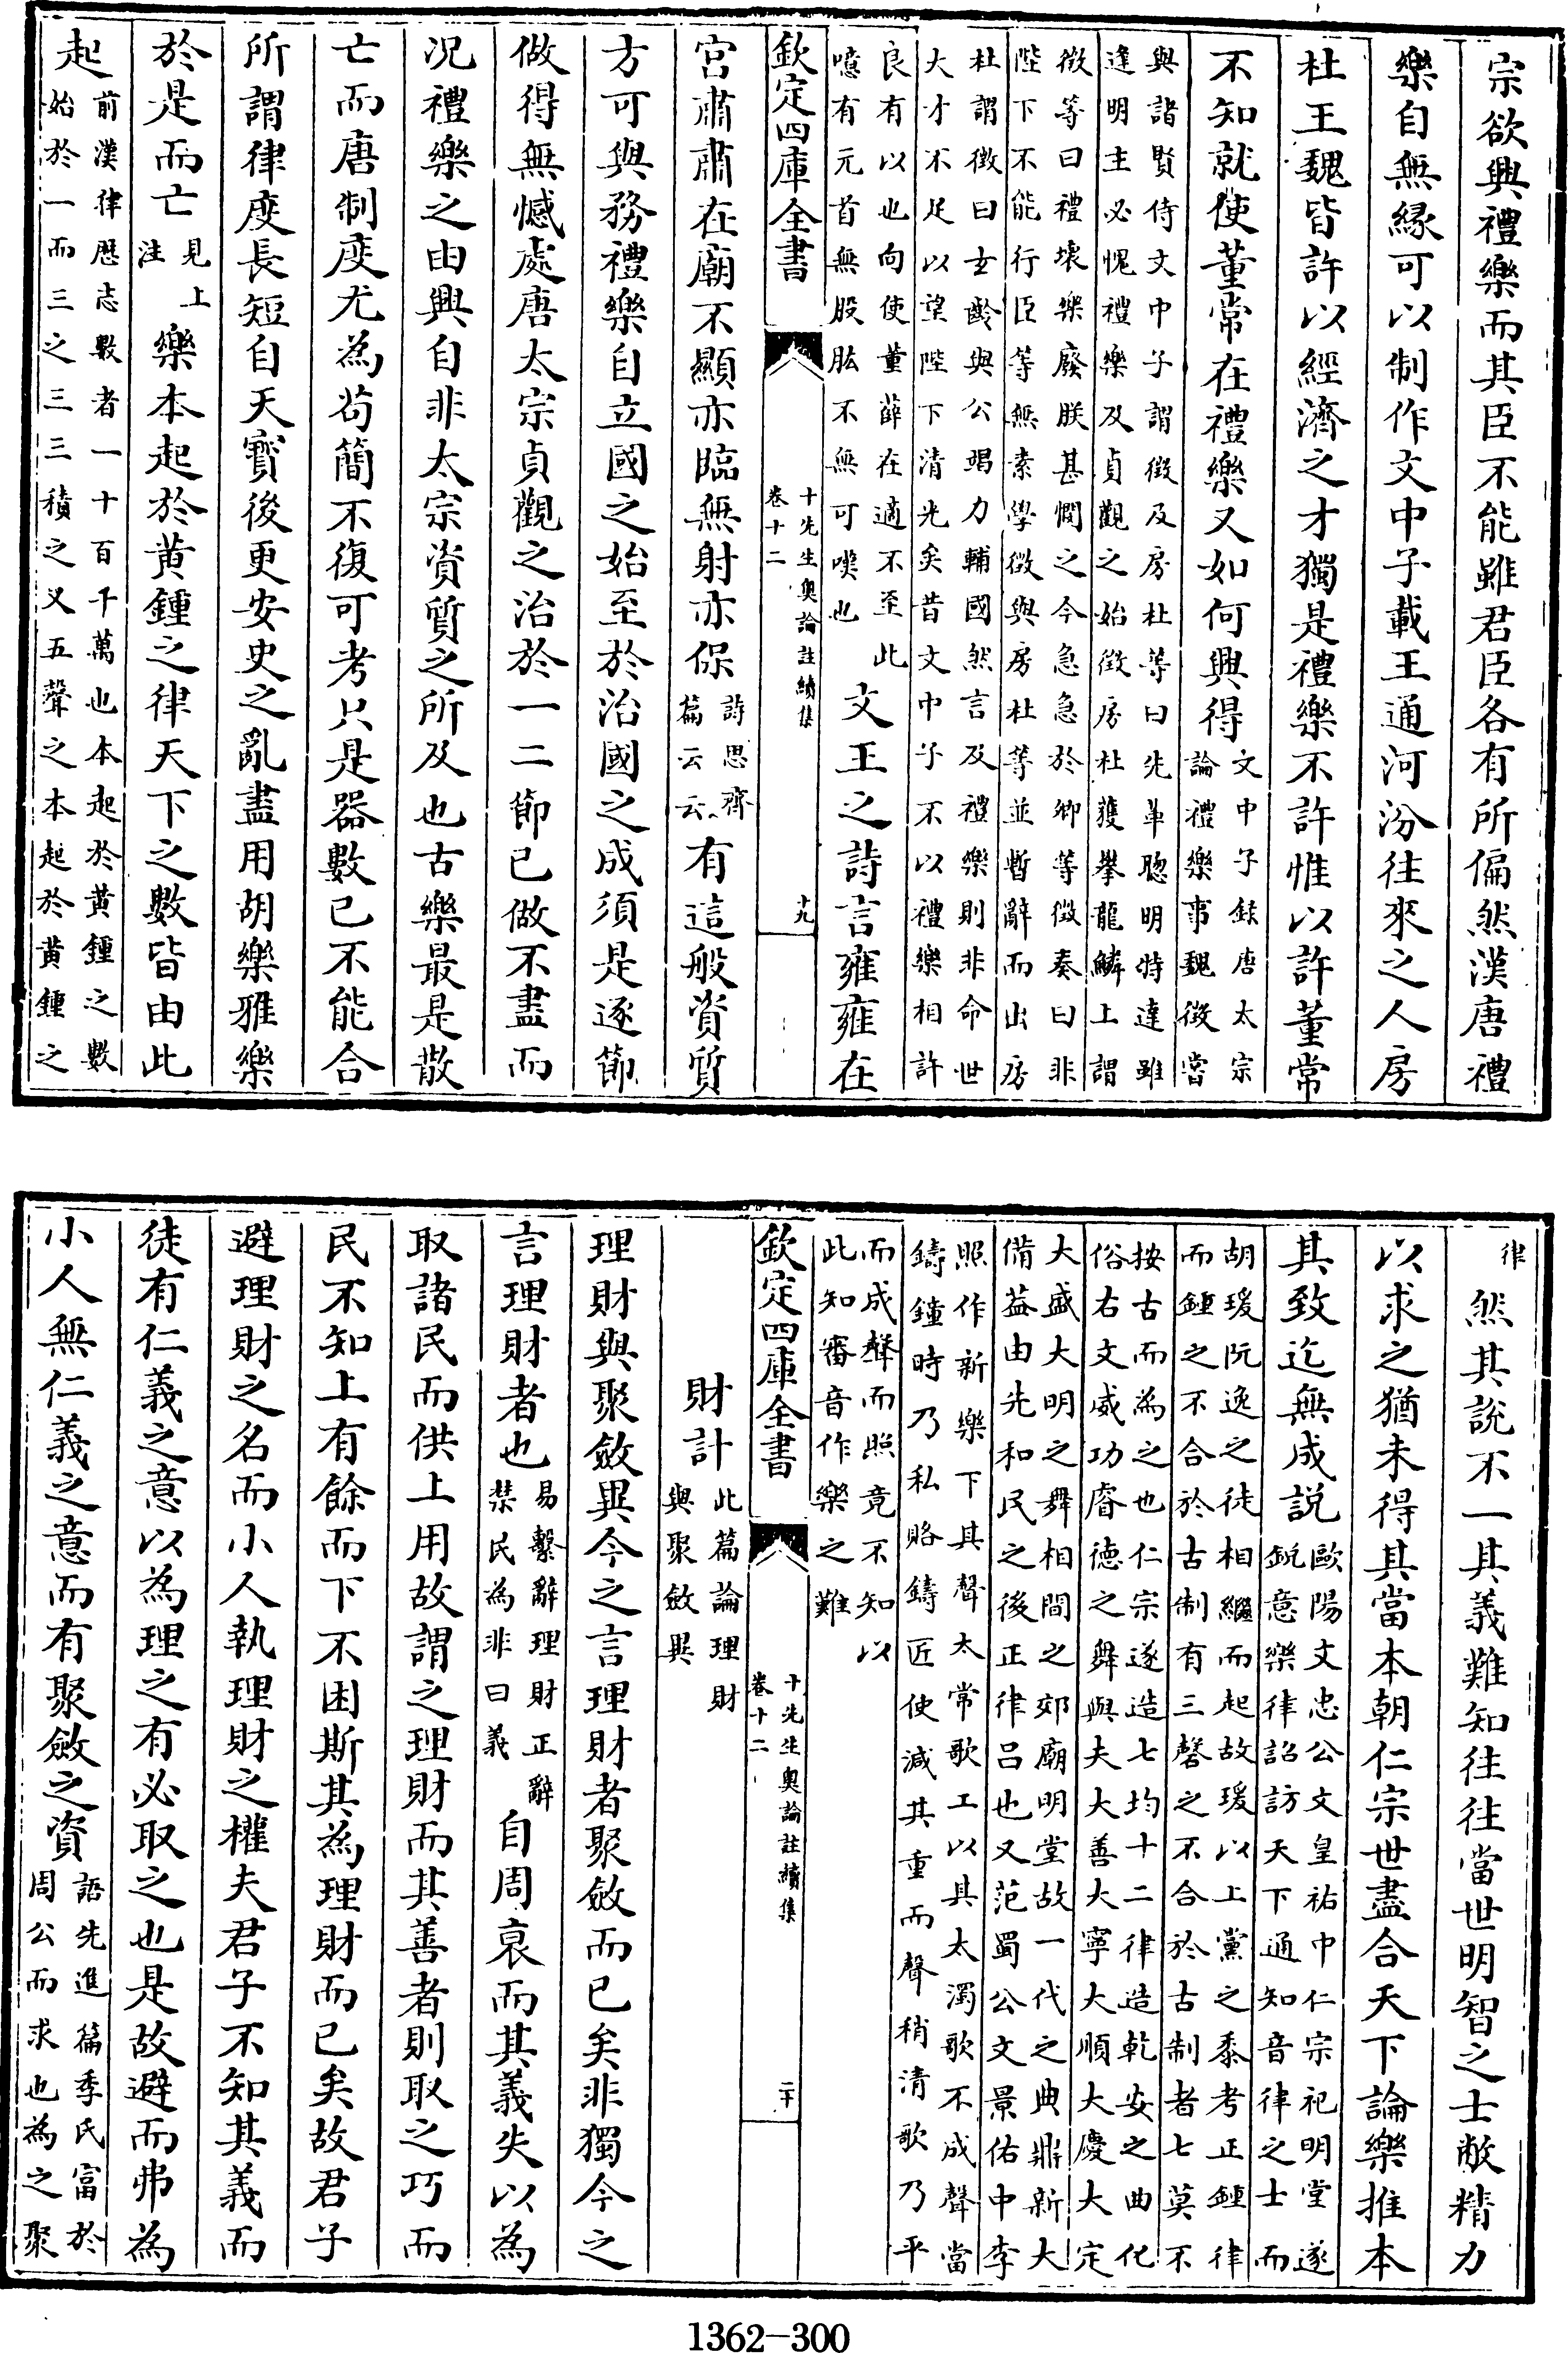 宗欲興禮樂而其臣不能雖君臣各有所偏然漢唐禮
樂自無緣可以制作文中子載王通河汾往來之人房
杜王魏皆許以經濟之才獨是禮樂不許惟以許董常
不知就使董常在禮樂又如何興得文中子録唐太宗
論禮樂事魏徵嘗
與諸賢侍文中子謂徵及房杜等曰先軰聰明特達雖
逢明主必愧禮樂及貞觀之始徵房杜獲攀龍鱗上謂
徴等曰禮壊樂廢朕甚憫之今急急於卿等徴奏曰非
陛下不能行臣等無素學徴與房杜等並暫辭而出房
杜謂徴曰玄齡與公竭力輔國然言及禮樂則非命世
大才不足以望陛下清光矣昔文中子不以禮樂相許
良有以也向使董薛在適不至此
噫有元首無股肱不無可嘆也
文王之詩言雍雍在
欽定四庫全書
十先生奥論註續集
卷十二
十九
宮肅肅在廟不顯亦臨無射亦保詩思齊
篇云云
有這般資質
方可與務禮樂自立國之始至於治國之成須是逐節
做得無憾處唐太宗貞觀之治於一二節已做不盡而
况禮樂之由興自非太宗資質之所及也古樂最是散
亡而唐制度尤為茍簡不復可考只是器數已不能合
所謂律度長短自天寳後更安史之亂盡用胡樂雅樂
於是而亡見上
注
樂本起於黄鍾之律天下之數皆由此
起前漢律厯志數者一十百千萬也本起於黄鍾之數
始於一而三之三三積之又五聲之本起於黄鍾之
律
然其說不一其義難知往往當世明智之士敝精力
以求之猶未得其當本朝仁宗世盡合天下論樂推本
其致迄無成説歐陽文忠公文皇祐中仁宗祀明堂遂
鋭意樂律詔訪天下通知音律之士而
胡瑗阮逸之徒相繼而起故瑗以上黨之黍考正鍾律
而鍾之不合於古制有三磬之不合於古制者七莫不
按古而為之也仁宗遂造七均十二律造乾安之曲化
俗右文威功睿德之舞與夫大善大寧大順大慶大定
大盛大明之舞相間之郊廟明堂故一代之典鼎新大
備益由先和民之後正律吕也又范蜀公文景佑中李
照作新樂下其聲太常歌工以其太濁歌不成聲當
鑄鐘時乃私賂鑄匠使減其重而聲稍清歌乃平
而成聲而照竟不知以
此知審音作樂之難
欽定四庫全書
十先生奥論註續集
卷十二
二十
財計此篇論理財
與聚斂異
理財與聚斂異今之言理財者聚斂而已矣非獨今之
言理財者也易繫辭理財正辭
禁民為非曰義
自周衰而其義失以為
取諸民而供上用故謂之理財而其善者則取之巧而
民不知上有餘而下不困斯其為理財而已矣故君子
避理財之名而小人執理財之權夫君子不知其義而
徒有仁義之意以為理之有必取之也是故避而弗為
小人無仁義之意而有聚斂之資語先進篇季氏富於
周公而求也為之聚
1362-300